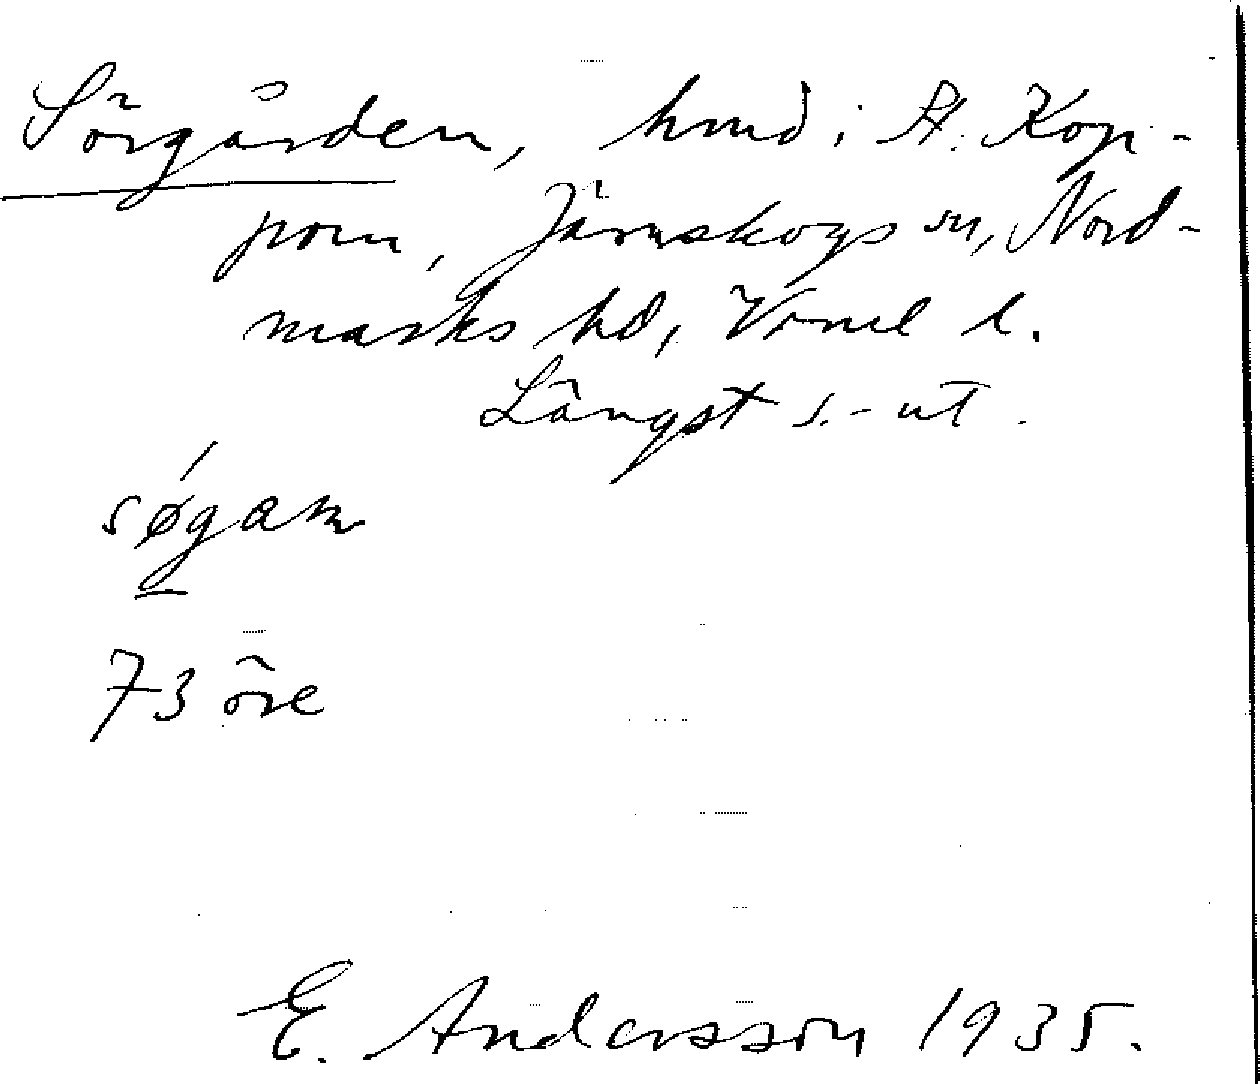 Sörgården, hmd i St. Kop-
pom, Järnskogs sn, Nord-
marks hd, Vrml l.
Längst s.-ut.
søgaɳ
73 öre
E. Andersson 1935.